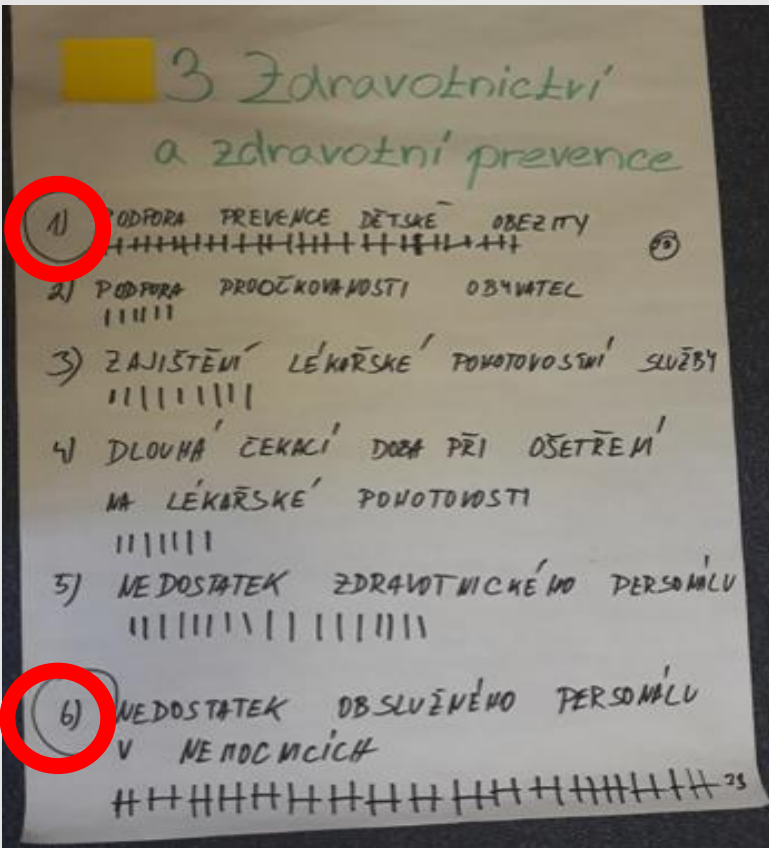 3 Zdravotnictví
a zdravotní prevence
1) PODPORA PREVENCE DĚTSKÉ OBEZITY
2) PODPORA PROOČKOVANOSTI OBYVATEL
3) ZAJIŠTĚNÍ LÉKAŘSKÉ POHOTOVOSTNÍ SLUŽBY
4) DLOUHÁ ČEKACÍ DOBA PŘI OŠETŘENÍ
NA LÉKAŘSKÉ POHOTOVOSTI
5) NEDOSTATEK ZDRAVOTNICKÉHO PERSONÁLU
6) NEDOSTATEK OBSLUŽNÉHO PERSONÁLU
V NEMOCNICÍCH